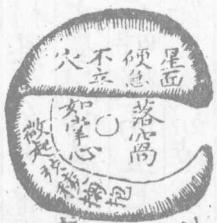 星面
便急
不立
穴
落心窩
如掌心
微起弦稜抱